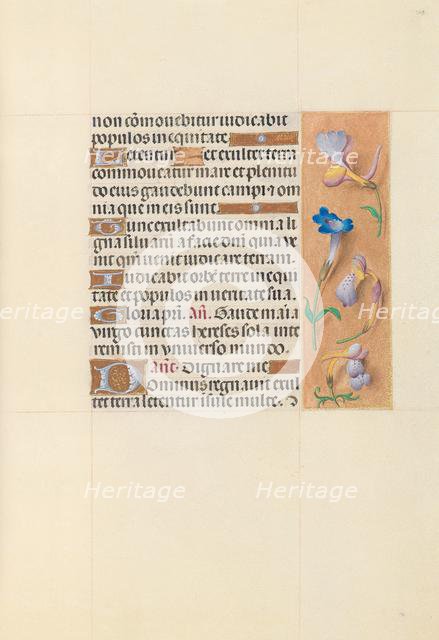 non cōmovebitur iudicabit
populos in equitate
Letentur et exultet terra
commoveatur mare et plenitu
do eius gaudebunt campi ⁊ om
nia que in eis sunt
Tunc exultabunt omnia li
gna silvarū a facie dn̄i quia ve
nit qm̄ venit iudicare terram
Iudicabit orbē terre in equi
tate et populos in veritate sua
Gloria pr̄i. Añ. Gaude maria
virgo cunctas hereses sola inte
remisti in universo mundo.
Añe Dignare me
Dominus regnavit exul
tet terra letentur isule multe.
Heritage
Heritage
Heritage
Heritage
Heritage
Heritage